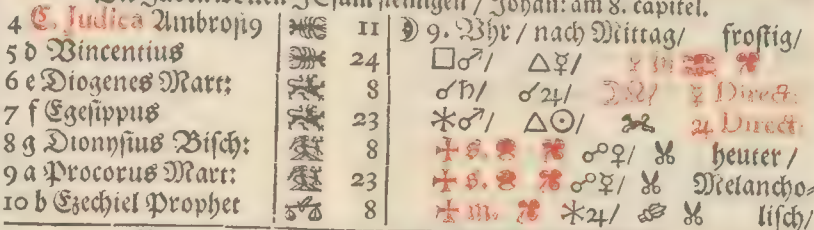 Den Juden wollen JEsum steinigen / Johan: am 8. capitel.
4 C. Judica Ambrosi9 11 ☽ 9. Vhr / nach Mittag/ frostig/
5 d Vincentius 24 □♂/ △☿/ ☿ in
6 e Diogenes Mart: 8 ☌♄/ ☌♃/ ☿ Direct:
7 f Egesippus 23 ⚹♂/ △☉/ ♃ Direct:
8 g Dionysius Bisch: 8 ☩ s. ☍♀/ heuter /
9 a Procorus Mart: 23 ☩ s. ☍☿/ Melancho⸗
10 b Ezechiel Prophet ♎ 8 ☩ m. ⚹♃/ lisch/